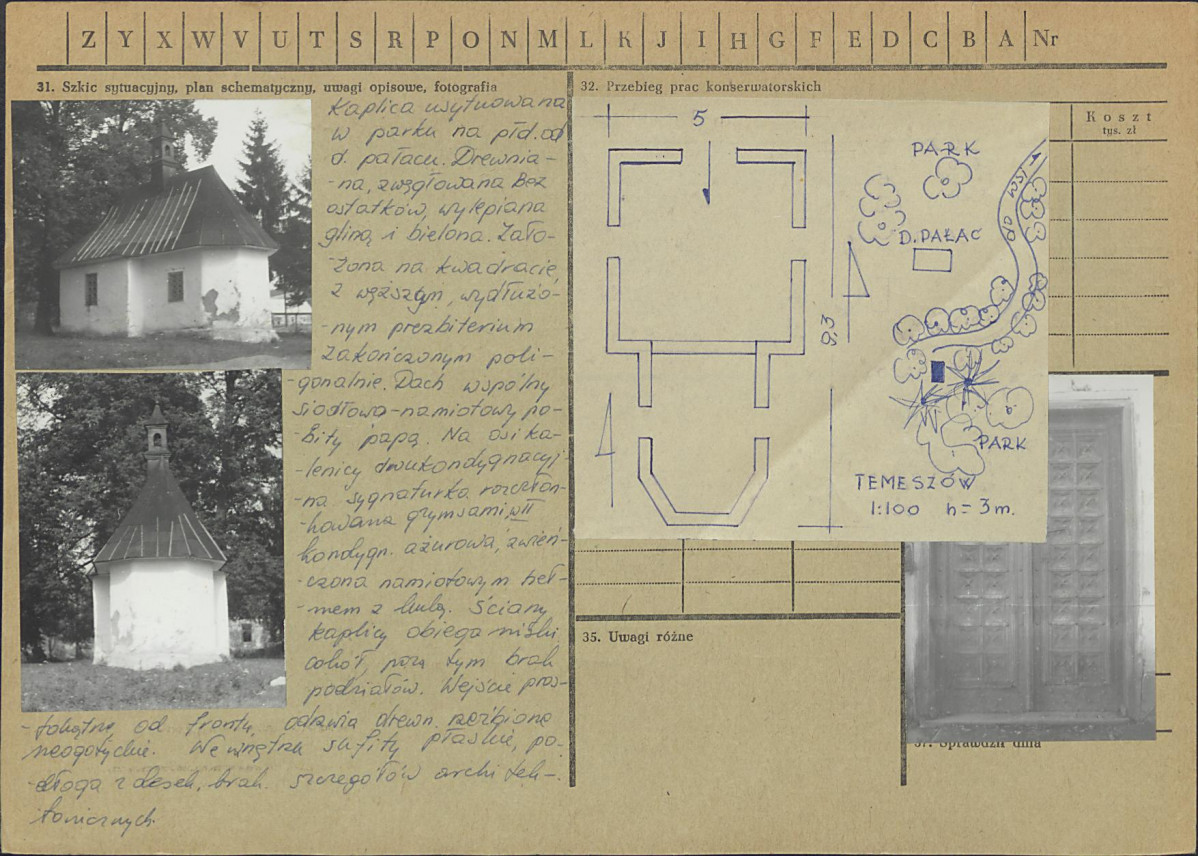 Z Y X W V U T S R P O N M L K J I H G F E D C B A Nr
31. Szkic sytuacyjny, plan schematyczny, uwagi opisowe, fotografia
Kaplica usytuowana
w parku na płd. od
d. pałacu. Drewnia-
-na, zwęgłowana bez
ostatków, wylepiana
gliną i bielona. Zało-
-żona na kwadracie
z węższym, wydłużo-
-nym prezbiterium
zakończonym poli-
-gonalnie. Dach wspólny
siodłowo-namiotowy po-
-bity papą. Na osi ka-
-lenicy dwukondygnacyj
-na sygnaturka rozczłon-
-kowana gzymsami, w II
kondygn. ażurowa, zwień-
-czona namiotowym heł-
-mem z kulą. Ściany
kaplicy obiega niski
cokół, poza tym brak
podziałów. Wejście pros-
-tokątne od frontu, odrzwia drewn. rzeźbione
neogotyckie. Wewnątrz sufity płaskie, po-
-dłoga z desek, brak szczegółów architek-
tonicznych.
32. Przebieg prac konserwatorskich
Koszt
tys. zł
5
9,3
PARK
D. PAŁAC
PARK
TEMESZÓW
1:100 h = 3 m.
35. Uwagi różne
37. Sprawdził dnia